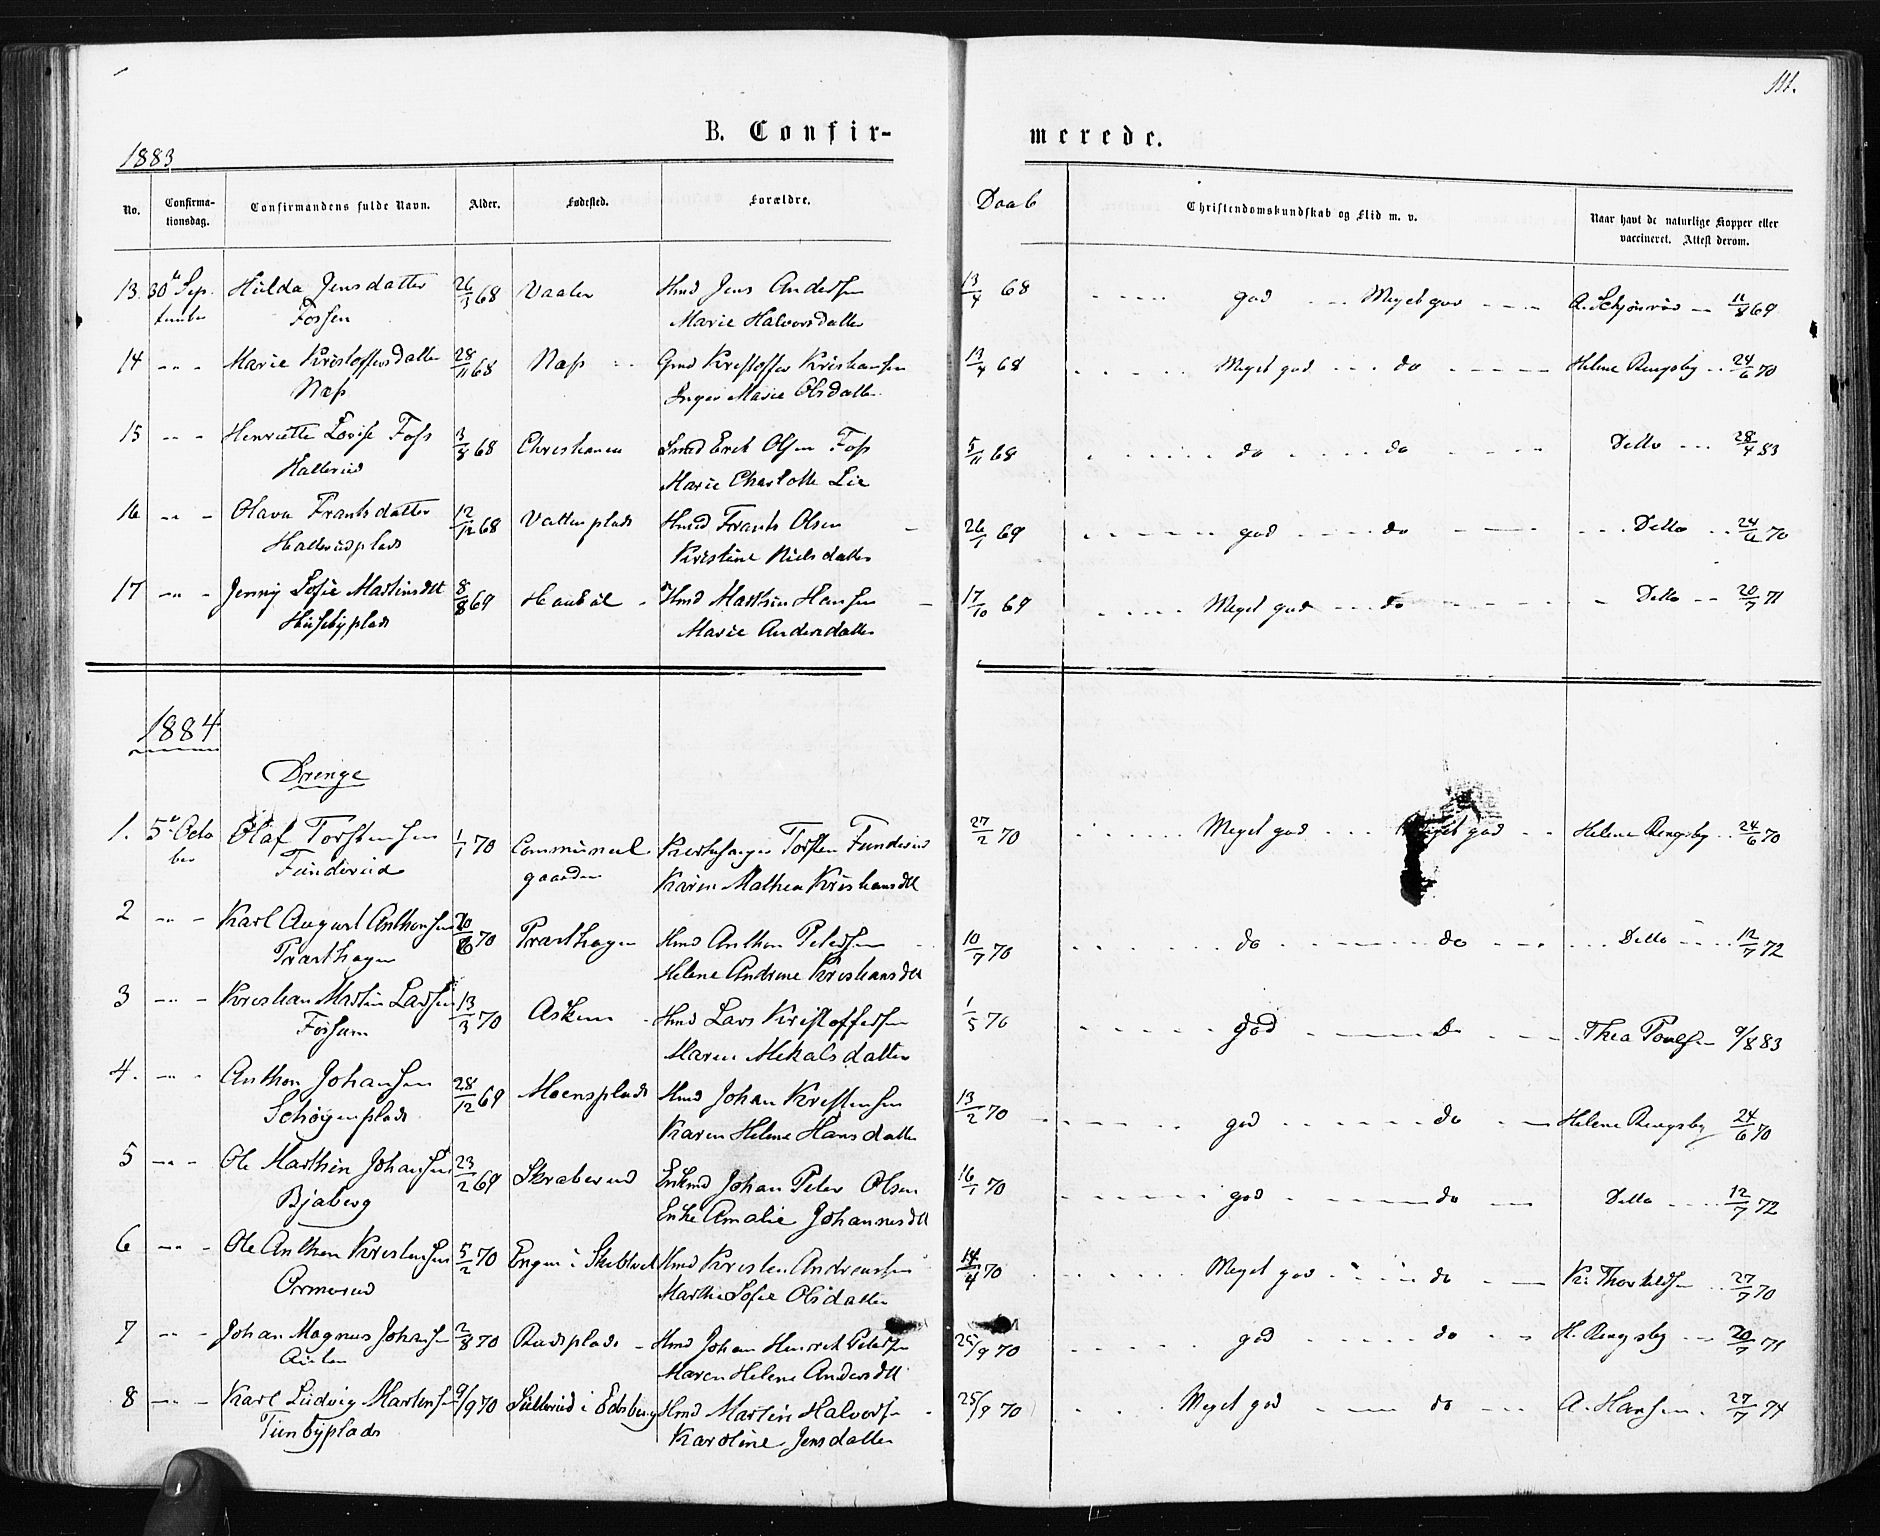 111.
B. Confir-
merede.
1883
No.
Confirma-
tionsdag.
Confirmandens fulde Navn.
Alder.
Fødested.
Forældre.
Daab
Christendomskundskab og Flid m. v.
Naar havt de naturlige Kopper eller
vaccineret. Attest derom.
13. 30te Sep. Hulda Jensdatter 26/3 68 Vaaler Hmd Jens Andersen 13/4 68 god Meget god A. Schjønrød 11/8 69
tember Fossen Marie Halvorsdatter
14 Marie Kristoffersdatter 28/11 68 Næss Gmd Kristoffer Kristiansen 13/4 68 Meget god do Helene Rengsby 24/6 70
Næss Inger Marie Olsdatter
15 Henriette Lovise Foss 3/8 68 Christiania Smed Erik Olsen Foss 5/11 68 do do Detto 28/4 83
Hallerud Marie Charlotte Lie
16 Olava Frantsdatter 12/12 68 Vatten plads Hmd Frants Olsen 26/1 69 god do Detto 24/6 70
Hallerudplads Kristine Nielsdatter
17 Jenny Sofie Martinsdtt 8/8 69 Haukøl Hmd Marthin Hansen 17/10 69 Meget god do Detto 20/7 71
Husebyplads Marie Andersdatter
1884
Drenge
1. 5te Octo Olaf Torstensen 1/1 70 Communal Kirkesanger Torsten Funderud 27/2 70 Meget god Meget god Helene Rengsby 24/6 70
ber Funderud gaarden Karen Mathea Kristiansdtt
2 Karl August Anthonsen 20/6 70 Præsthagen Hmd Anthon Petersen 10/7 70 do do Detto 12/7 72
Præsthagen Helene Andrine Kristiansdtt
3 Kristian Martin Larsen 13/3 70 Askim Hmd Lars Kristoffersen 1/5 70 god do Thea Poulsen 9/8 83
Fossum Maren Mikalsdatter
4. Anthon Johansen 28/12 69 Moensplads Hmd Johan Kristensen 13/2 70 god do Helene Rengsby 24/6 70
Schøyenplads Karen Helene Hansdatter
5 Ole Marthin Johansen 23/2 69 Skraberud Enkmd Johan Peter Olsen 16/1 70 god do Detto 12/7 72
Bjaberg Enke Amalie Johannesdtt
6 Ole Anthon Kristensen 5/2 70 Engen i Skibtvet Hmd Kristen Andreassen 14/4 70 Meget god do Kr. Thorkildsen 27/7 70
Ormerud Marthe Sofie Olsdatter
7 Johan Magnus Johansen 2/8 70 Rudsplads Hmd Johan Henrik Petersen 25/9 70 god do H. Rengsby 20/7 71
Maren Helene Andersdtt
8 Karl Ludvig Martinsen 9/9 70 Sulterud i Edsberg Hmd Martin Halvorsen 25/9 70 Meget god do A. Hansen 27/7 74
Tunbyplads Karoline Jensdatter